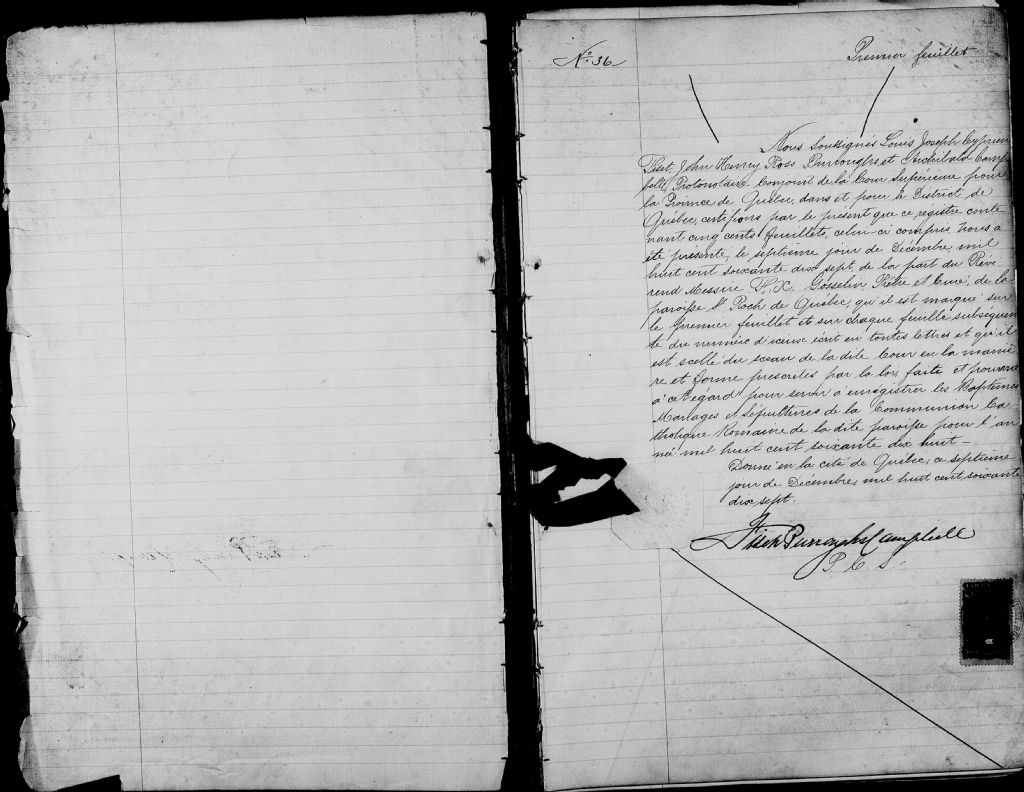 No. 36
Premier feuillet
Nous soussignés Louis Joseph Cyprien
Fiset, John Henry Ross Burroughs, et Archibald Camp
bell, Protonotaire Conjoint de la Cour Supérieure pour
la Province de Québec, dans et pour le District de
Québec, certifions par le présent que ce registre conte
nant cinq cents feuillets, celui-ci compris, nous a
été présenté, le septième jour de Décembre mil
huit cent soixante dix sept, de la part du Révé
rend Messire Gosselin, Prêtre et Curé, de la
paroisse St Roch de Québec, qu'il est marqué sur
le premier feuillet et sur chaque feuillet subséquen
te du numéro d'iceux écrit en toutes lettres et qu'il
est scellé du sceau de la dite Cour en la maniè
re et forme prescrites par la loi, faite et pourvue
à cet égard pour servir à enregistrer les Baptêmes
Mariages et Sépultures de la Communion Ca
tholique Romaine de la dite paroisse pour l'an
née mil huit cent soixante dix huit —
Donné en la cité de Québec, ce septième
jour de Décembre, mil huit cent soixante
dix sept.
Fiset Burroughs Campbell
P. C. S.